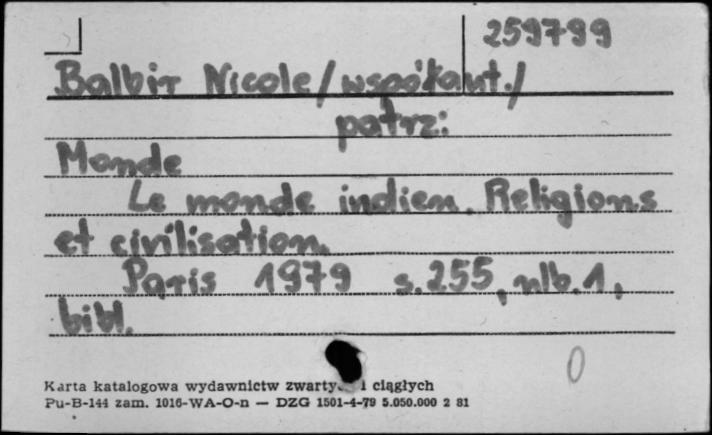 259799
Balbir Nicole /współaut./
patrz:
Monde
Le monde indien. Religions
et civilisation.
Paris 1979 s.255, nlb.1,
bibl.
0
Karta katalogowa wydawnictw i ciągłych
Pu-B-144 zam. 1016-WA-O-n — DZG 1501-4-79 5.050.000 2 81